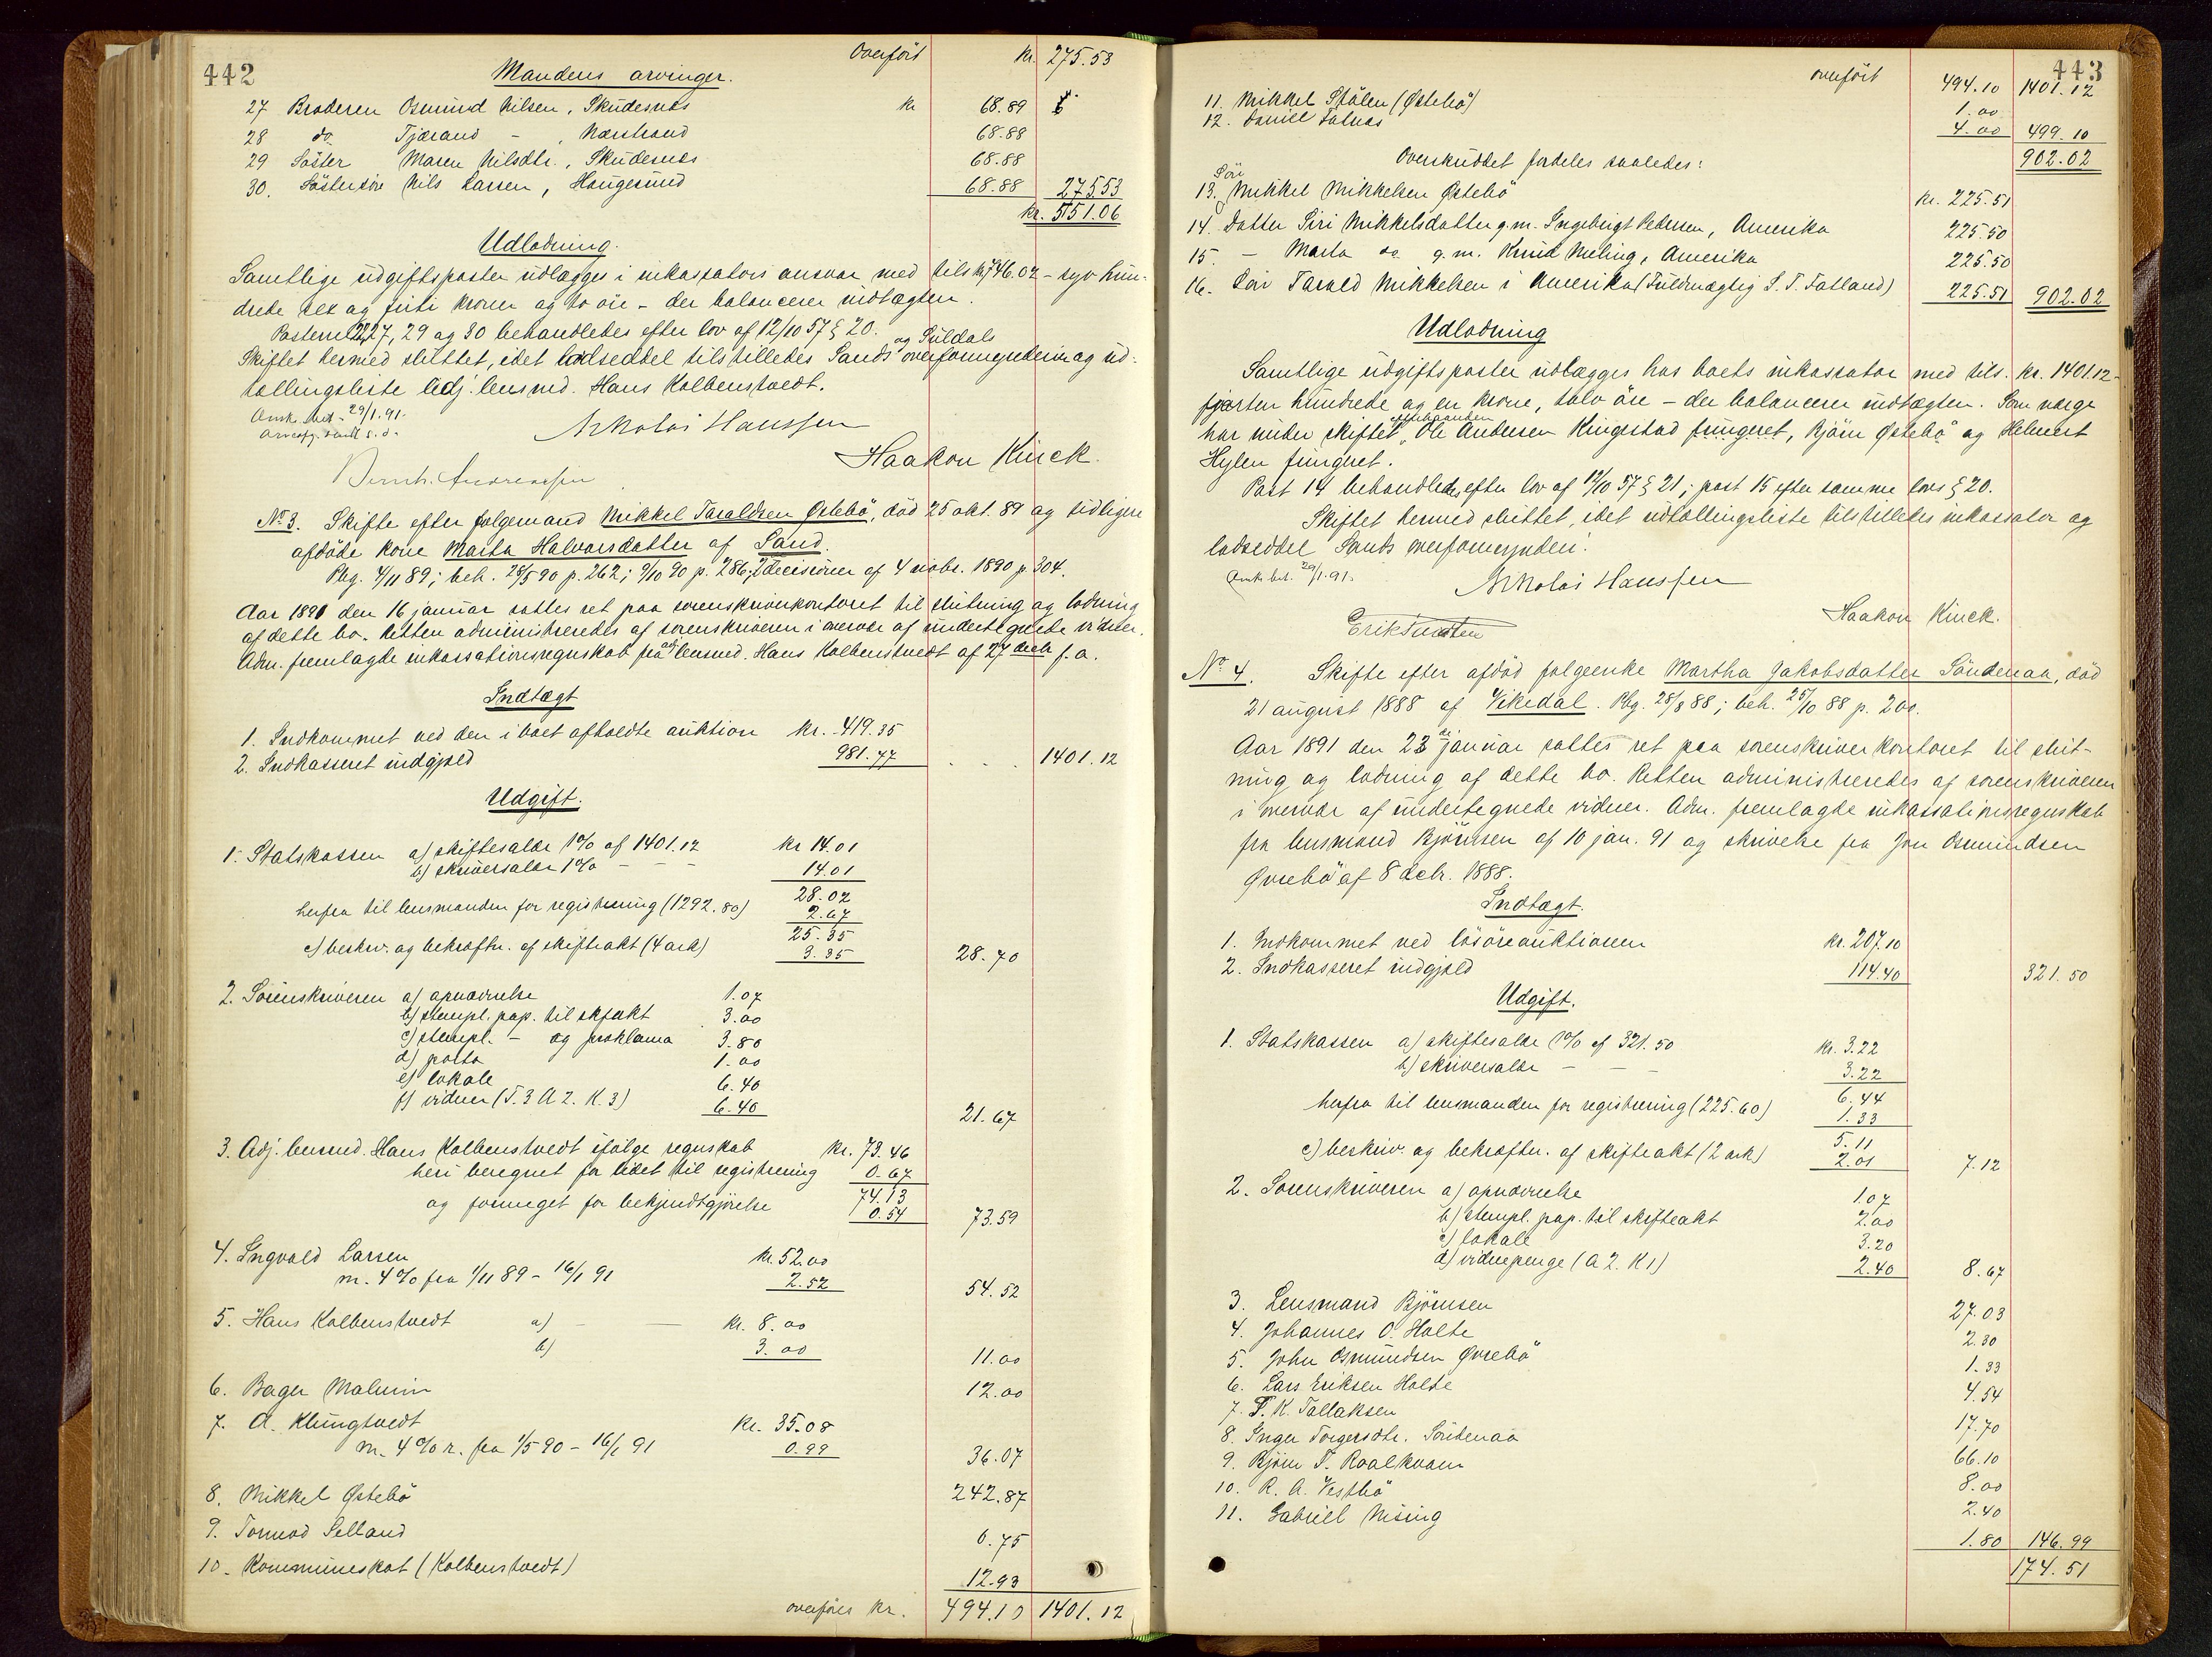 442
Overført kr. 275.53
Mandens arvinger.
27 Broderen Osmund Nilsen, Skudesnes kr 68.89
28 do. Tjærand - , Nærstrand 68.88
29 Søster Maren Nilsdtr., Skudesnes 68.88
30. Søstersøn Nils Larsen, Haugesund 68.88 275.53
kr. 551.06
Udlodning.
Samtlige udgiftsposter udlægges i inkassators ansvar med tils kr 746.02 - syv hun-
drede sex og firti kroner og to øre - der balancerer indtægten.
Posterne 27, 29 og 30 behandledes efter lov af 12/10 57 § 20.
og Suldals
Skiftet hermed sluttet, idet lodseddel tilstilledes Sands overformynderier og ud-
tællingsliste adj. lensmd. Hans Kolbenstvedt.
Anm. bet. 29/1. 91.
Nikolai Hanssen
Haakon Kinck.
Bernh. Andreassen
No 3. Skifte efter følgemand Mikkel Taraldsen Østebø, død 25 okt. 89 og tidligere
afdøde kone Marta Halvorsdatter af Sand.
Pbg. 4/11 89; beh. 28/5 90 p. 262; 9/10 90 p. 286; decisioner af 4 nobr. 1890 p 304.
Aar 1891 den 16 januar sattes ret paa sorenskriverkontoret til slutning og lodning
af dette bo. Retten administreredes af sorenskriveren i overvær af undertegnede vidner.
Adm. fremlagde inkassationsregnskab fra adj lensmd. Hans Kolbenstvedt af 27 decbr f. a.
Indtægt
1. Indkommet ved den i boet afholdte auktion kr. 419.35
2. Indkasseret indgjæld 981.77 . . . 1401.12
Udgift.
1. Statskassen a) skiftesalær 1% af 1401.12 kr 14.01
b) skriversalær 1% - - - 14.01
28.02
herfra til lensmanden for registrering (1292.80) 2.67
25.35
c) beskr. og bekræftn. af skifteakt (4 ark) 3.35 28.70
2. Sorenskriveren a) opnævnelse 1.07
b) stempl. pap. til skfakt 3.00
c) stempl. - og proklama 3.80
d) porto 1.00
e) lokale 6.40
f) vidner (T. 3 A 2. K. 3) 6.40 21.67
3. Adj. lensmd. Hans Kolbenstvedt ifølge regnskab kr. 73.46
heri beregnet for lidet til registrering 0.67
74.13
og formeget for bekjendtgjørelse 0.54 73.59
4. Ingvald Larsen kr. 52.00
m. 4% fra 1/11 89 - 16/1 91 2.52 54.52
5. Hans Kolbenstvedt a) - - kr. 8.00
b) 3.00 11.00
6. Bager Malmin 12.00
7. A. Klungtvedt kr. 35.08
m. 4% r. fra 1/5 90 - 16/1 91 0.99 36.07
8. Mikkel Østebø 242.87
9. Tormod Selland 0.75
10. Kommuneskat (Kolbenstvedt) 12.93
overføres kr. 494.10 1401.12
443
overført 494.10 1401.12
11. Mikkel Stølen (Østebø) 1.00
12. Daniel Fatnes 4.00 499.10
902.02
Overskuddet fordeles saaledes:
13. Søn Mikkel Mikkelsen Østebø kr. 225.51
14. Datter Siri Mikkelsdatter g. m. Ingebrigt Pedersen, Amerika 225.50
15. - Marta do. g. m. Knud Meling, Amerika 225.50
16. Søn Tarald Mikkelsen i Amerika (Fuldmægtig S. T. Fatland) 225.51 902.02
Udlodning
Samtlige udgiftsposter udlægges hos boets inkassator med tils. kr. 1401.12 -
fjorten hundrede og en krone, tolv øre - der balancerer indtægten. Som værge
efterhaanden
har under skiftet Ole Andersen Ringstad fungeret, Bjørn Østebø og Helmert
Hylen fungeret.
Post 14 behandledes efter lov af 12/10 57 § 21; post 15 efter samme lovs § 20.
Skiftet hermed sluttet, idet udtællingsliste tilstilledes inkassator og
lodseddel Sands overformynderi.
Anm. bet. 29/1. 91.
Nikolai Hanssen
Haakon Kinck.
No 4. Skifte efter afdød følgeenke Martha Jakobsdatter Søndenaa, død
21 august 1888 af Vikedal. Pbg. 28/8 88; beh. 25/10 88 p. 200.
Aar 1891 den 23 januar sattes ret paa sorenskriverkontoret til slut-
ning og lodning af dette bo. Retten administreredes af sorenskriveren
i overvær af undertegnede vidner. Adm. fremlagde inkassationsregnskab
fra lensmand Bjørnsen af 10 jan. 91 og skrivelse fra Jon Osmundsen
Øvrebø af 8 decbr. 1888.
Indtægt.
1. Indkommet ved løsøreauktionen kr. 207.10
2. Indkasseret indgjæld 114.40 321.50
Udgift.
1. Statskassen a) skiftesalær 1% af 321.50 kr. 3.22
b) skriversalær - - - 3.22
6.44
herfra til lensmanden for registrering (225.60) 1.33
5.11
c) beskriv. og bekræftn. af skifteakt (2 ark) 2.01 7.12
2. Sorenskriveren a) opnævnelse 1.07
b) stempl. pap. til skifteakt 2.00
c) lokale 3.20
d) vidnepenge (A 2. K 1) 2.40 8.67
3. Lensmand Bjørnsen 27.03
4. Johannes O. Holte 2.30
5. John Osmundsen Øvrebø 1.33
6. Lars Eriksen Holte 4.54
7. T. K. Tallaksen 17.70
8. Inger Torgersdtr. Søndenaa 66.10
9. Bjørn T. Roalkvam 8.00
10. R. A. Vestbø 2.40
11. Gabriel Nising 1.80 146.99
174.51